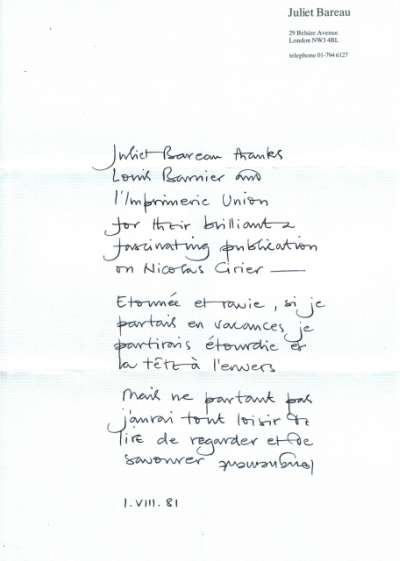 Juliet Bareau
29 Belsize Avenue
London NW3 4BL
telephone 01-794 6127
Juliet Bareau thanks
Louis Barnier and
l'Imprimerie Union
for their brilliant &
fascinating publication
on Nicolas Cirier —
Etonnée et ravie, si je
partais en vacances je
partirais étourdie et
la tête à l'envers
Mais ne partant pas
j'aurai tout loisir de
lire de regarder et de
savourer longuement
1.VIII.81